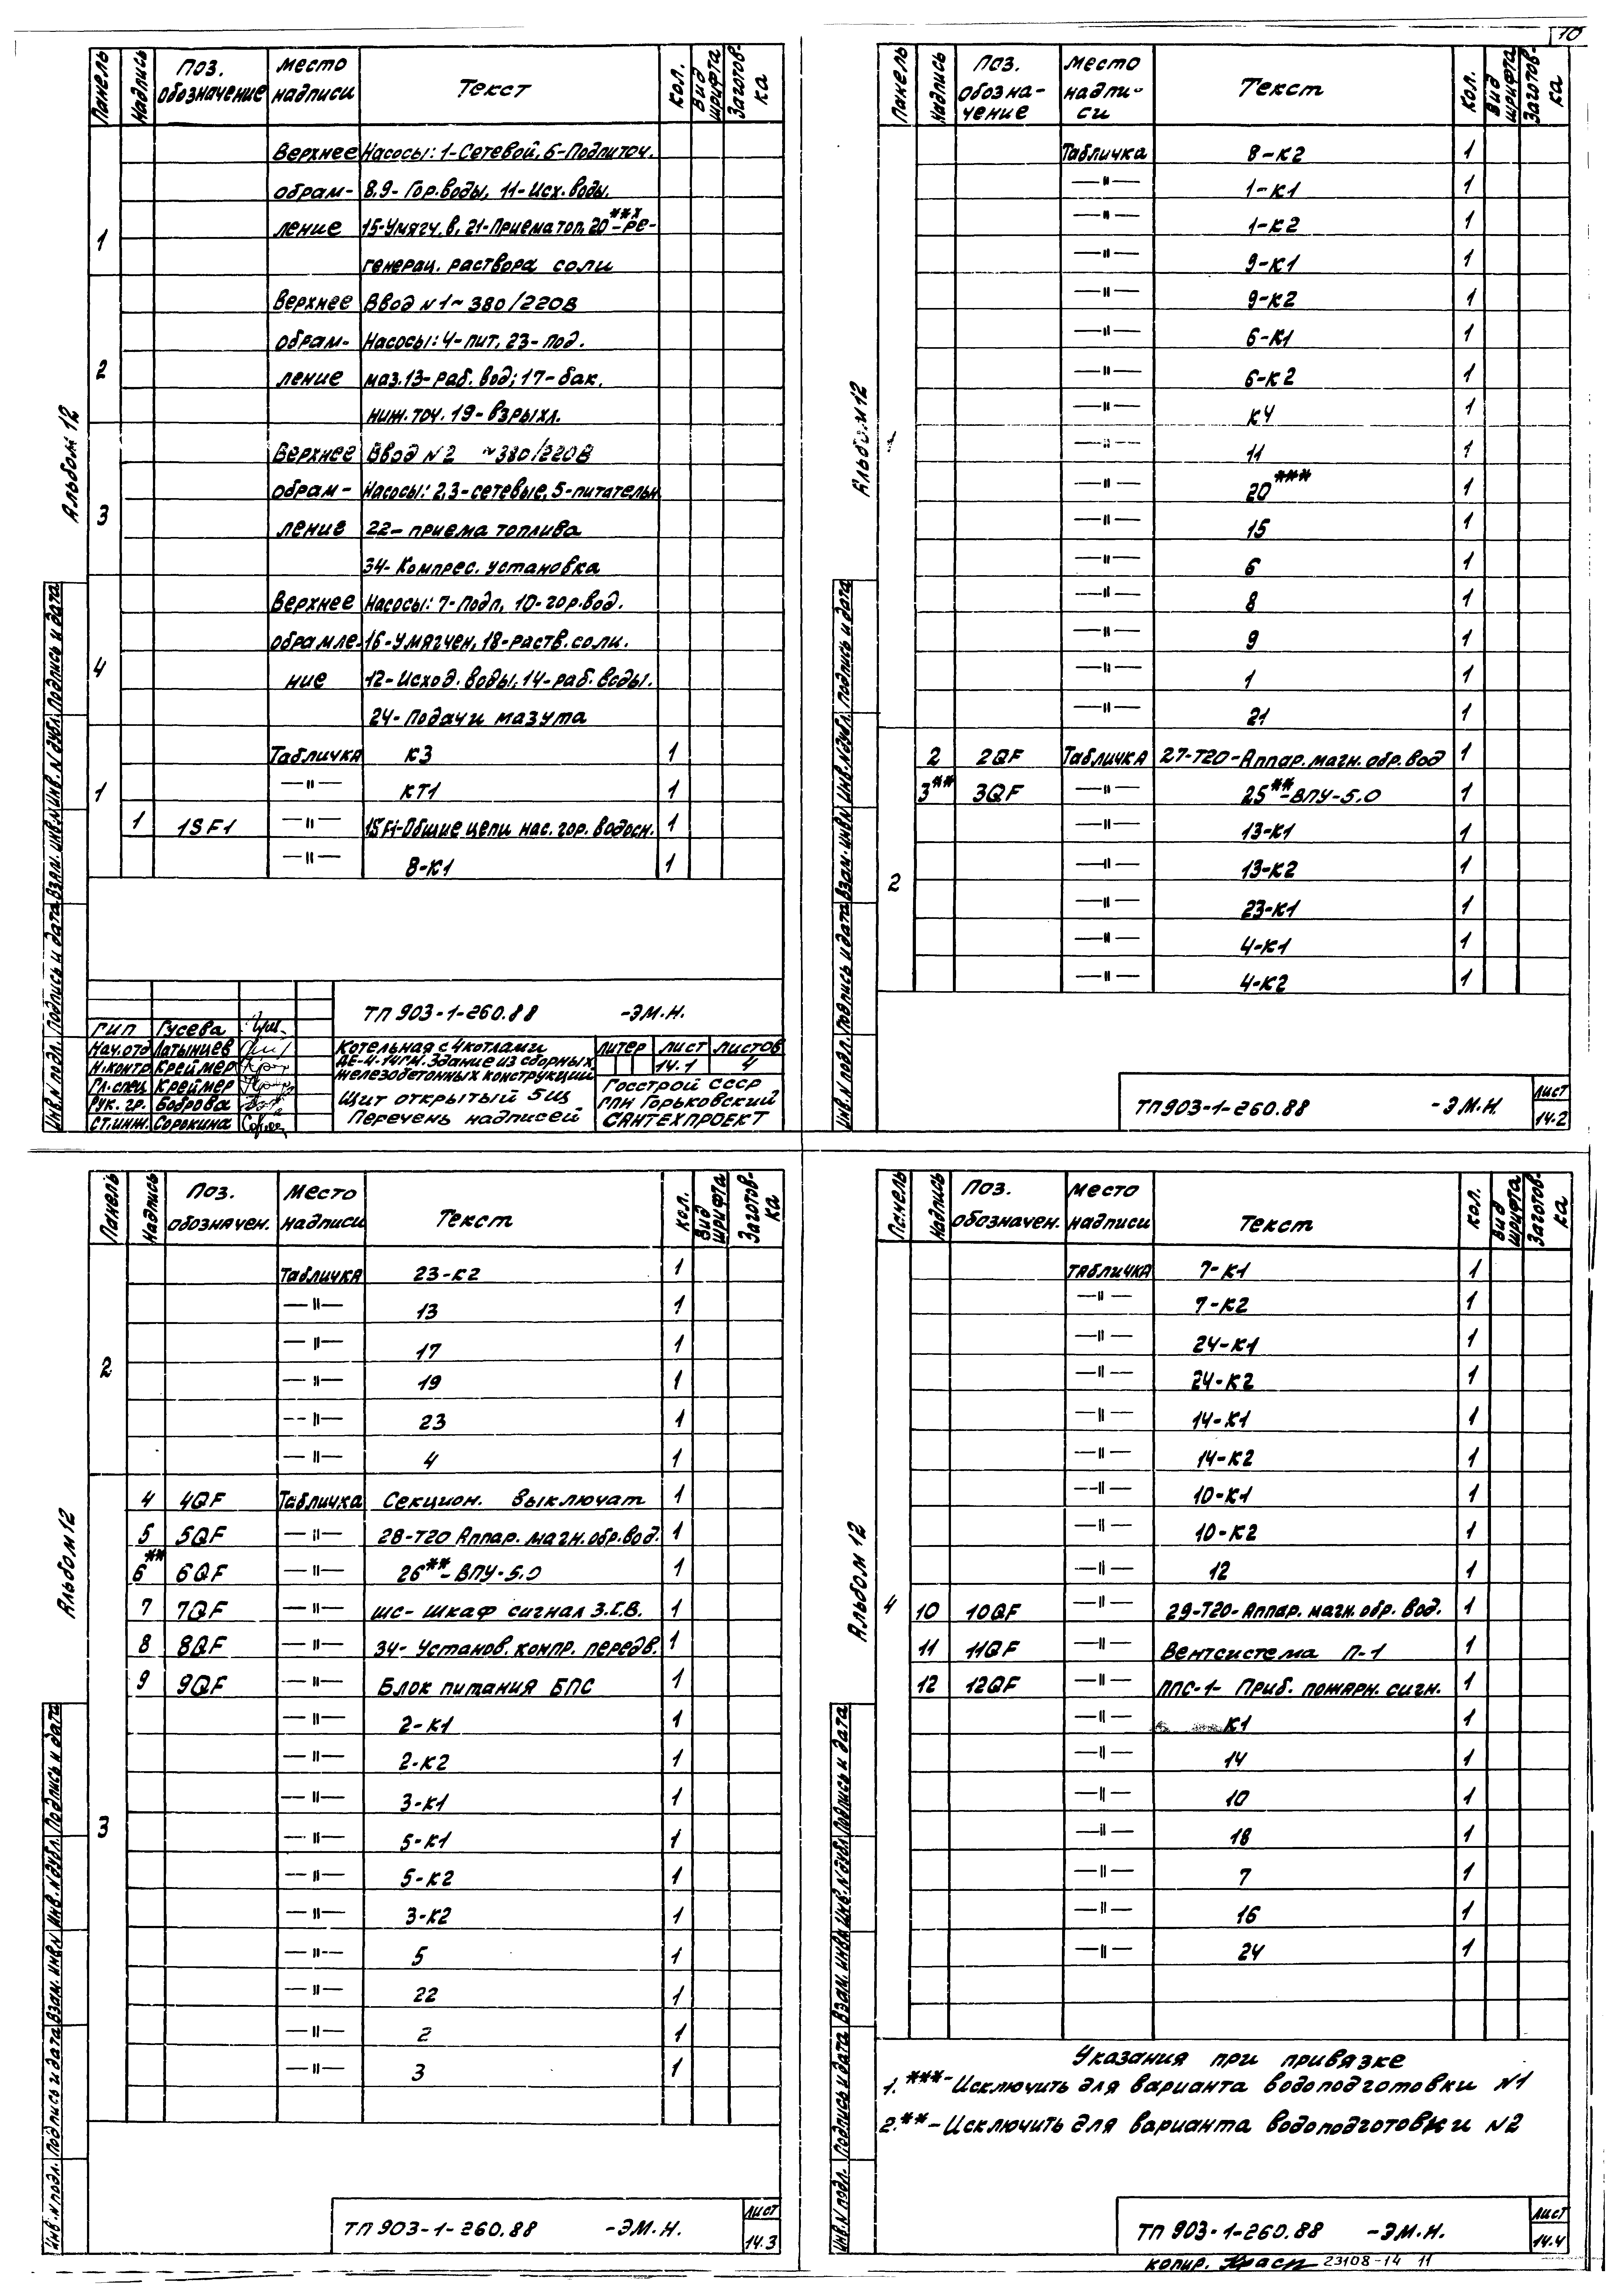 10
Альбом 12
Панель | Надпись | Поз. обозначение | Место надписи | Текст | Кол. | Вид шрифта | Заготов-ка
1 | Верхнее | Насосы: 1-Сетевой, 6-Подпиточ.
обрам- | 8,9-Гор.воды, 11-Исх.воды,
ление | 15-Умягч.в, 21-Приема топ, 20***-ре-
генерац. раствора соли
2 | Верхнее | Ввод N1~380/220В
обрам- | Насосы: 4-пит, 23-под.
ление | маз.13-раб.вод; 17-бак.
ниж.точ. 19-взрыхл.
3 | Верхнее | Ввод N2 ~380/220В
обрам- | Насосы: 2,3-сетевые, 5-питательн
ление | 22-приема топлива
34-Компрес. установка
4 | Верхнее | Насосы: 7-Подп, 10-гор.вод.
обрамле- | 16-Умягчен, 18-раств.соли.
ние | 12-Исход.воды, 14-раб.воды.
24-Подачи мазута
1 | Табличка | К3 | 1
—"— | КТ1 | 1
1 | 1SF1 | —"— | 1SF1-Общие цепи нас. гор. водосн. | 1
—"— | 8-К1 | 1
ТП 903-1-260.88 -ЭМ.Н.
ГИП Гусева
Нач.отд Латынцев
Н.контр Креймер
Гл.спец Креймер
Рук.гр. Боброва
Ст.инж. Сорокина
Котельная с 4 котлами
ДЕ-4-14ГМ. Здание из сборных
железобетонных конструкций
Щит открытый 5щ
Перечень надписей
Литер | Лист | Листов
14.1 | 4
Госстрой СССР
ГПИ Горьковский
САНТЕХПРОЕКТ
Инв.N подл. Подпись и дата Взам.инв.N Инв.N дубл. Подпись и дата
Альбом 12
Панель | Надпись | Поз. обозна-чение | Место надпи-си | Текст | Кол. | Вид шрифта | Заготов-ка
1 | Табличка | 8-К2 | 1
—"— | 1-К1 | 1
—"— | 1-К2 | 1
—"— | 9-К1 | 1
—"— | 9-К2 | 1
—"— | 6-К1 | 1
—"— | 6-К2 | 1
—"— | К4 | 1
—"— | 11 | 1
—"— | 20*** | 1
—"— | 15 | 1
—"— | 6 | 1
—"— | 8 | 1
—"— | 9 | 1
—"— | 1 | 1
—"— | 21 | 1
2 | 2 | 2QF | Табличка | 27-Т20-Аппар.магн.обр.вод | 1
3** | 3QF | —"— | 25**-ВПУ-5.0 | 1
—"— | 13-К1 | 1
—"— | 13-К2 | 1
—"— | 23-К1 | 1
—"— | 4-К1 | 1
—"— | 4-К2 | 1
ТП 903-1-260.88 -ЭМ.Н.
Лист
14.2
Инв.N подл. Подпись и дата Взам.инв.N Инв.N дубл. Подпись и дата
Альбом 12
Панель | Надпись | Поз. обозначен. | Место надписи | Текст | Кол. | Вид шрифта | Заготов-ка
2 | Табличка | 23-К2 | 1
—"— | 13 | 1
—"— | 17 | 1
—"— | 19 | 1
—"— | 23 | 1
—"— | 4 | 1
3 | 4 | 4QF | Табличка | Секцион. выключат | 1
5 | 5QF | —"— | 28-Т20 Аппар. магн.обр.вод. | 1
6** | 6QF | —"— | 26**-ВПУ-5.0 | 1
7 | 7QF | —"— | ШС-Шкаф сигнал З.Г.В. | 1
8 | 8QF | —"— | 34-Установ.компр. передв. | 1
9 | 9QF | —"— | Блок питания БПС | 1
—"— | 2-К1 | 1
—"— | 2-К2 | 1
—"— | 3-К1 | 1
—"— | 5-К1 | 1
—"— | 5-К2 | 1
—"— | 3-К2 | 1
—"— | 5 | 1
—"— | 22 | 1
—"— | 2 | 1
—"— | 3 | 1
ТП 903-1-260.88 -ЭМ.Н.
Лист
14.3
Инв.N подл. Подпись и дата Взам.инв.N Инв.N дубл. Подпись и дата
Альбом 12
Панель | Надпись | Поз. обозначен. | Место надписи | Текст | Кол. | Вид шрифта | Заготов-ка
4 | Табличка | 7-К1 | 1
—"— | 7-К2 | 1
—"— | 24-К1 | 1
—"— | 24-К2 | 1
—"— | 14-К1 | 1
—"— | 14-К2 | 1
—"— | 10-К1 | 1
—"— | 10-К2 | 1
—"— | 12 | 1
10 | 10QF | —"— | 29-Т20-Аппар. магн.обр.вод. | 1
11 | 11QF | —"— | Вентсистема П-1 | 1
12 | 12QF | —"— | ППС-1- Приб. пожарн. сигн. | 1
—"— | К1 | 1
—"— | 14 | 1
—"— | 10 | 1
—"— | 18 | 1
—"— | 7 | 1
—"— | 16 | 1
—"— | 24 | 1
Указания при привязке
1.***-Исключить для варианта водоподготовки N1
2.**-Исключить для варианта водоподготовки N2
ТП 903-1-260.88 -ЭМ.Н.
Лист
14.4
Инв.N подл. Подпись и дата Взам.инв.N Инв.N дубл. Подпись и дата
копир. 23108-14 11